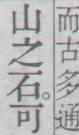 而古多通
山之石。可